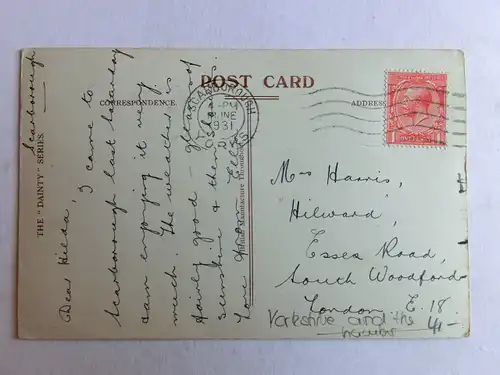 POST CARD
CORRESPONDENCE.
ADDRESS
THE "DAINTY" SERIES.
British Manufacture Throughout
SCARBOROUGH
PM
JNE
1931
Scarborough
Dear Hilda,
I came to
Scarborough last Saturday
& am enjoying it very
much. The weather is
fairly good - glasses of
sunshine & then
Love from Ellen
Mrs Harris,
Hilward,
Essex Road,
South Woodford
London E.18.
Yorkshire and the
Humber
4/-